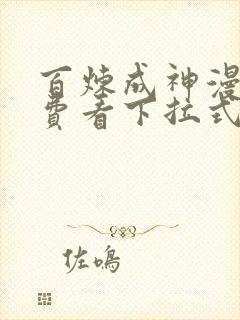 百炼成神漫
费看下拉式
佐鸣